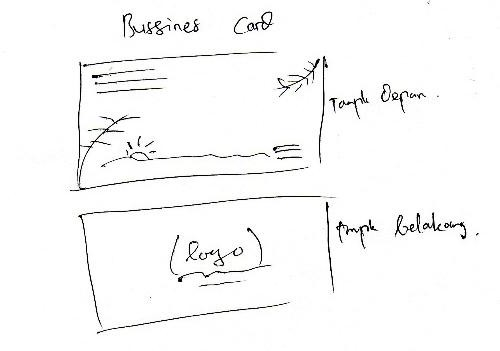 Bussines Card
Tampk Depan.
(logo)
Ampk belakang.